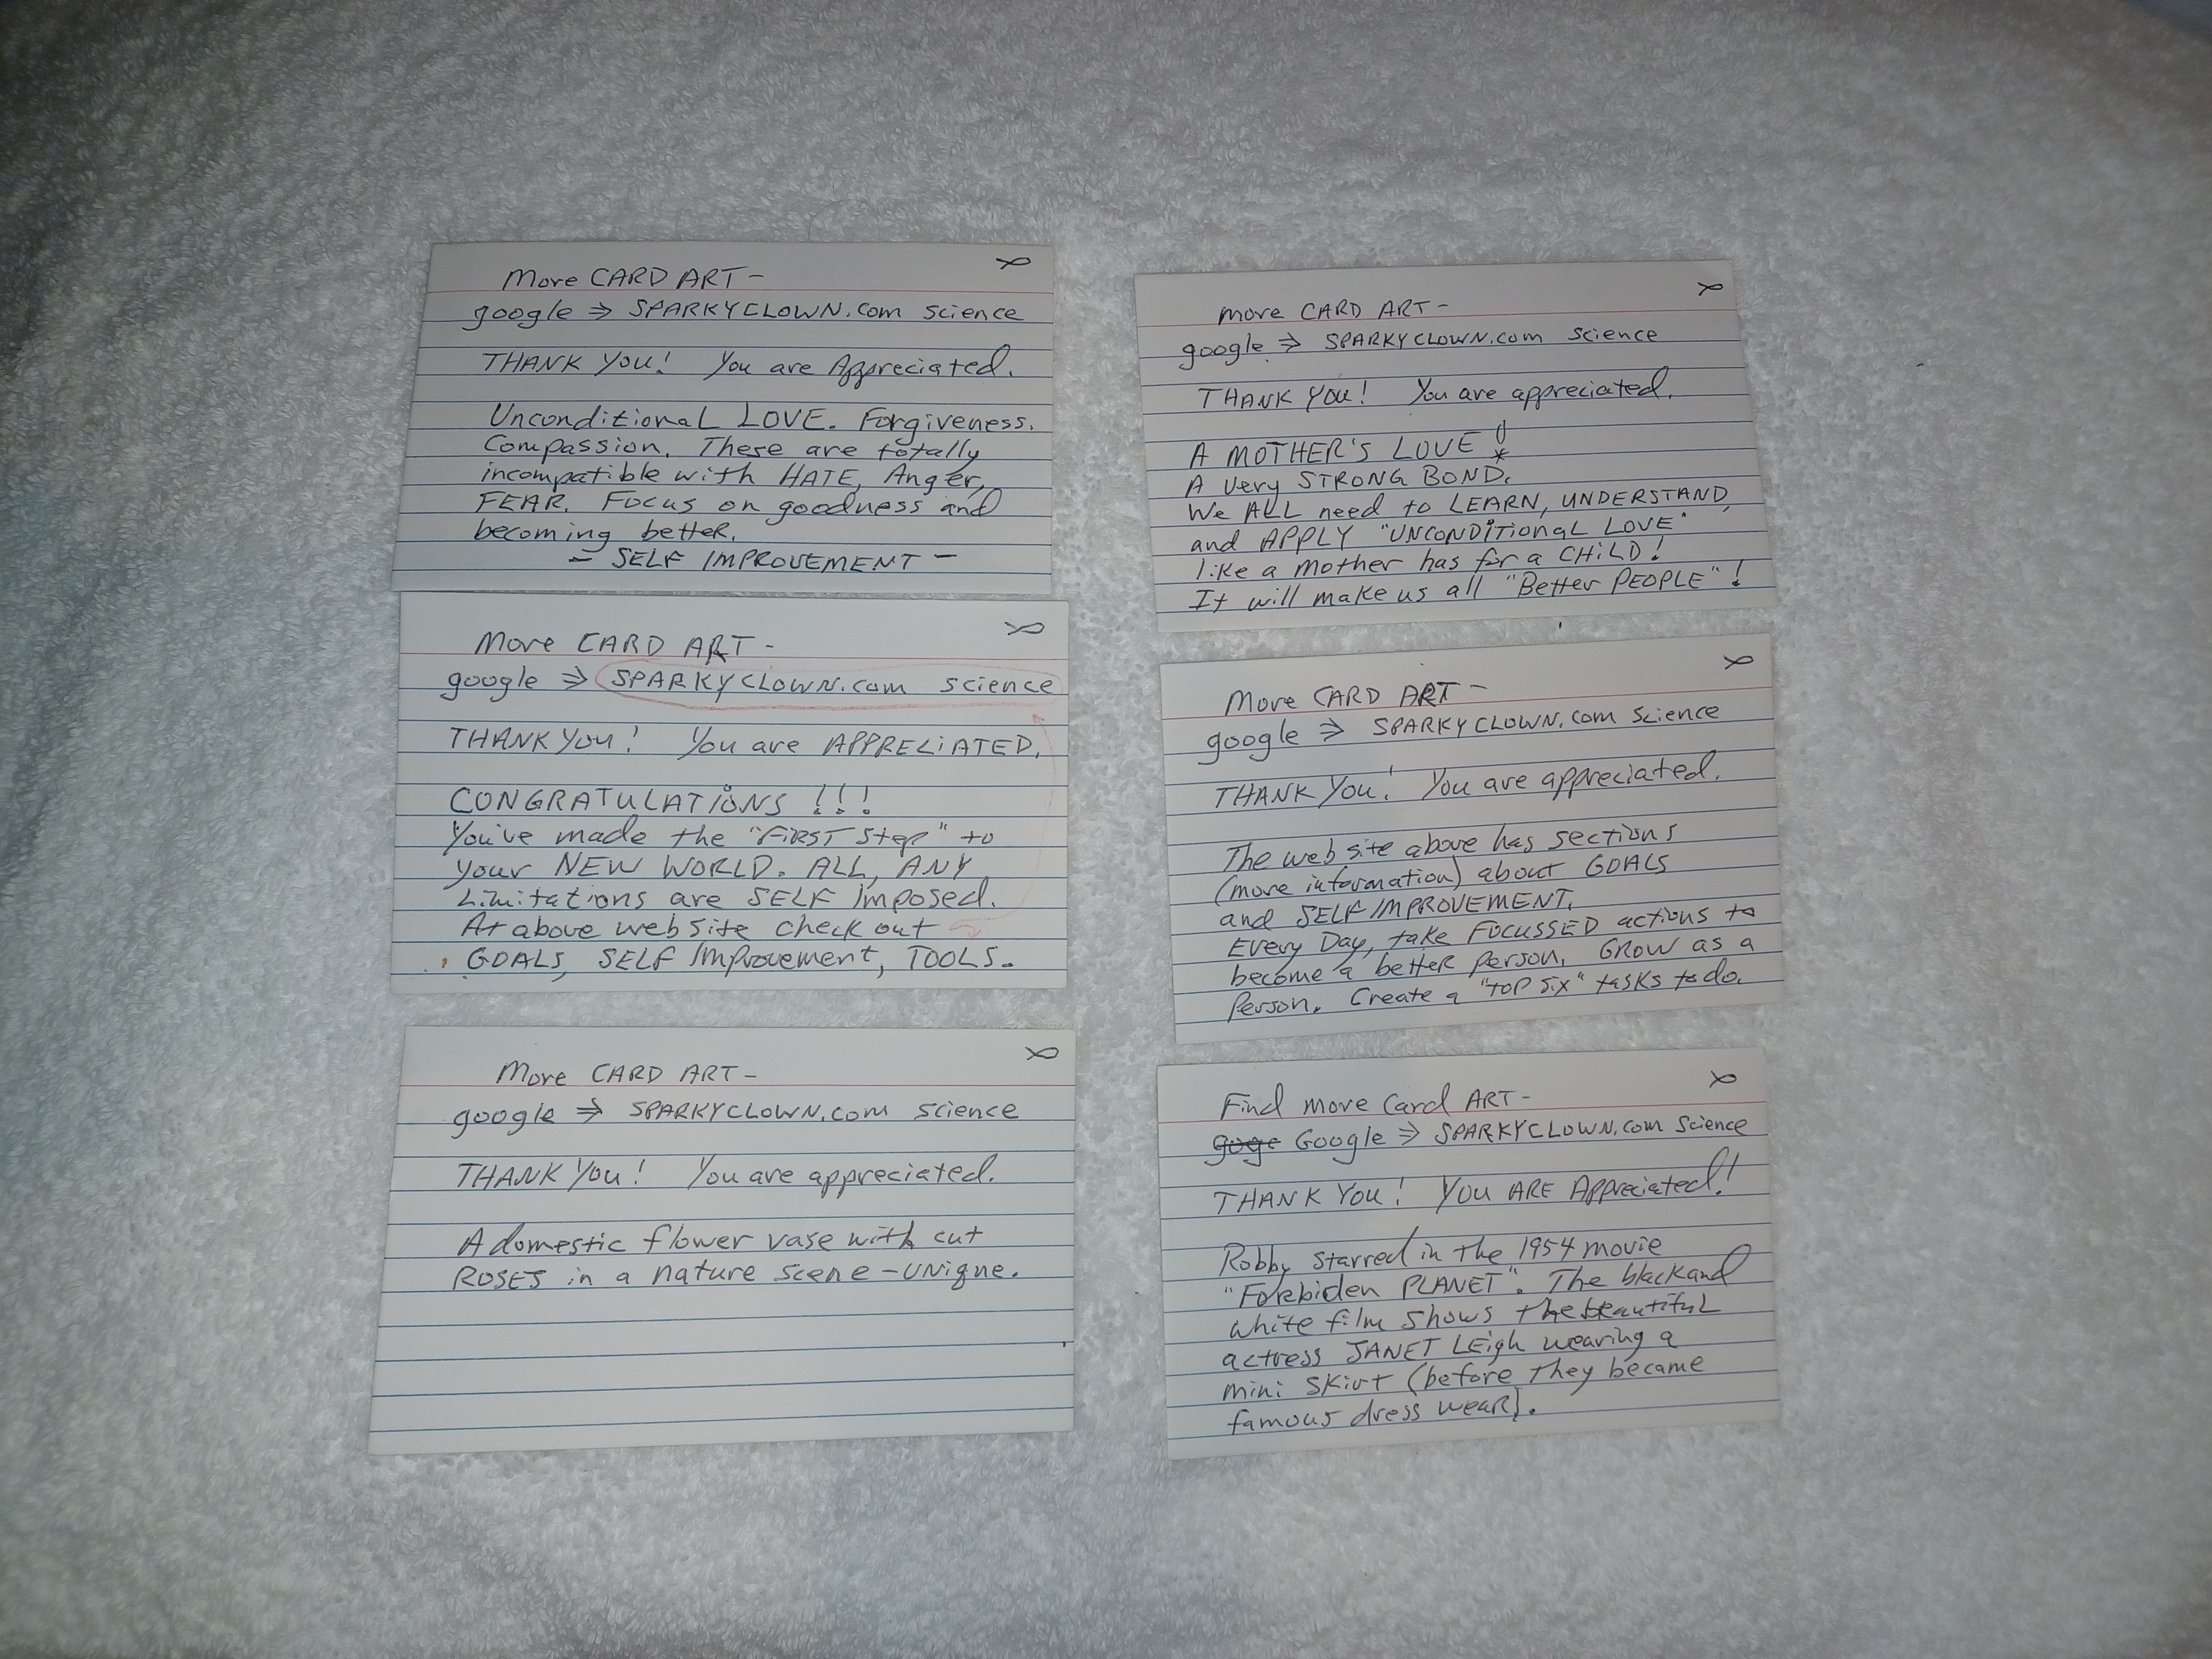 More CARD ART-
google ⇒ SPARKYCLOWN.com science
THANK YOU! You are Appreciated.
Unconditional LOVE. Forgiveness.
Compassion. These are totally
incompatible with HATE, Anger,
FEAR. Focus on goodness and
becoming better.
- SELF IMPROVEMENT -
More CARD ART-
google ⇒ SPARKYCLOWN.com science
THANK YOU! You are APPRECiATED.
CONGRATULATiONS !!!
You've made the "FiRST Step" to
your NEW WORLD. ALL, ANY
Limitations are SELF Imposed.
At above web site check out
GOALS, SELF Improvement, TOOLS.
More CARD ART-
google ⇒ SPARKYCLOWN.com science
THANK YOU! You are appreciated.
A domestic flower vase with cut
ROSES in a nature scene - UNique.
more CARD ART-
google ⇒ SPARKYCLOWN.com science
THANK YOU! You are appreciated.
A MOTHER'S LOVE !
A very STRONG BOND.
We ALL need to LEARN, UNDERSTAND,
and APPLY "UNCONDiTionaL LOVE"
like a mother has for a CHiLD!
It will make us all "Better PEOPLE"!
More CARD ART-
google ⇒ SPARKYCLOWN.com Science
THANK YOU! You are appreciated.
The web site above has sections
(more information) about GOALS
and SELF IMPROVEMENT.
Every Day, take FOCUSSED actions to
become a better person. GROW as a
Person. Create a "TOP Six" tasks to do.
Find more Card ART-
goge Google ⇒ SPARKYCLOWN.com Science
THANK YOU! YOU ARE Appreciated!
Robby starred in the 1954 movie
"Forbiden PLANET". The black and
white film shows the beautiful
actress JANET LEigh wearing a
mini SKirt (before they became
famous dress wear).